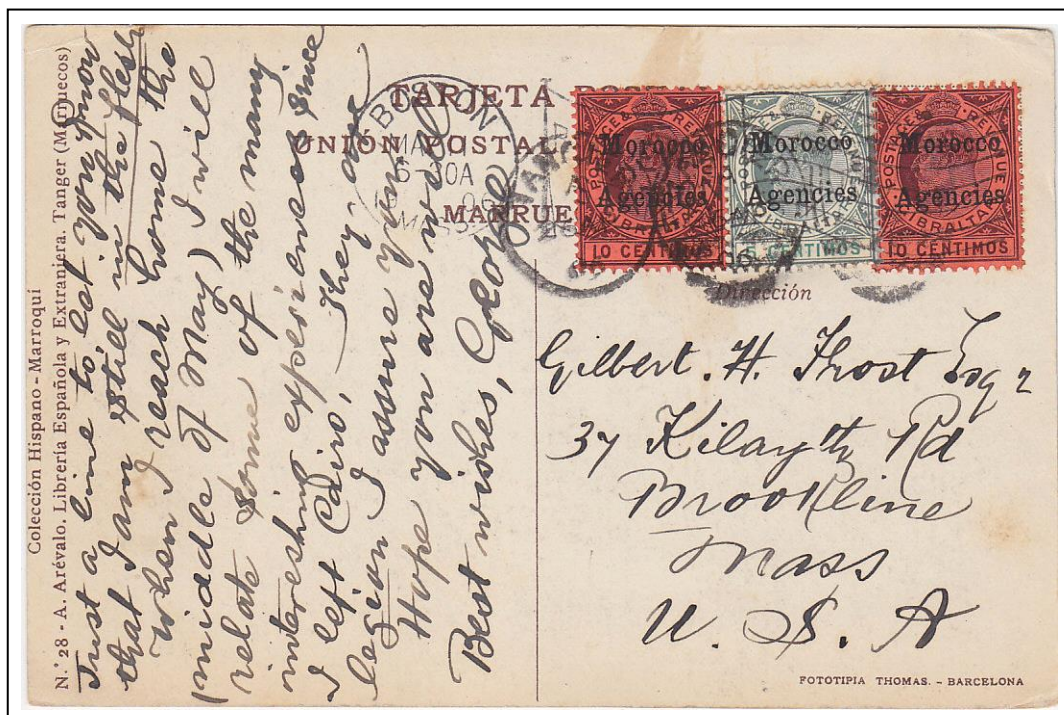 Colección Hispano - Marroquí
N.° 28 - A. Arévalo. Librería Española y Extranjera. Tanger (Marruecos)
Just a line to let you know
that I am still in the flesh
When I reach home the
(middle of May) I will
relate some of the many
interesting experiences since
I left Cairo, They are
legion I assure you.
Hope you are well
Best wishes,
TARJETA
UNIÓN POSTAL
MARRUE
BOSTON
6-30A
MASS
POSTAGE & REVENUE
Morocco
Agencies
GIBRALTAR
10 CENTIMOS
POSTAGE & REVENUE
Morocco
Agencies
GIBRALTAR
5 CENTIMOS
POSTAGE & REVENUE
Morocco
Agencies
GIBRALTAR
10 CENTIMOS
Dirección
Gilbert. H. Frost Esqr
37 Kilsyth Rd
Brookline
Mass
U. S. A
FOTOTIPIA THOMAS. - BARCELONA